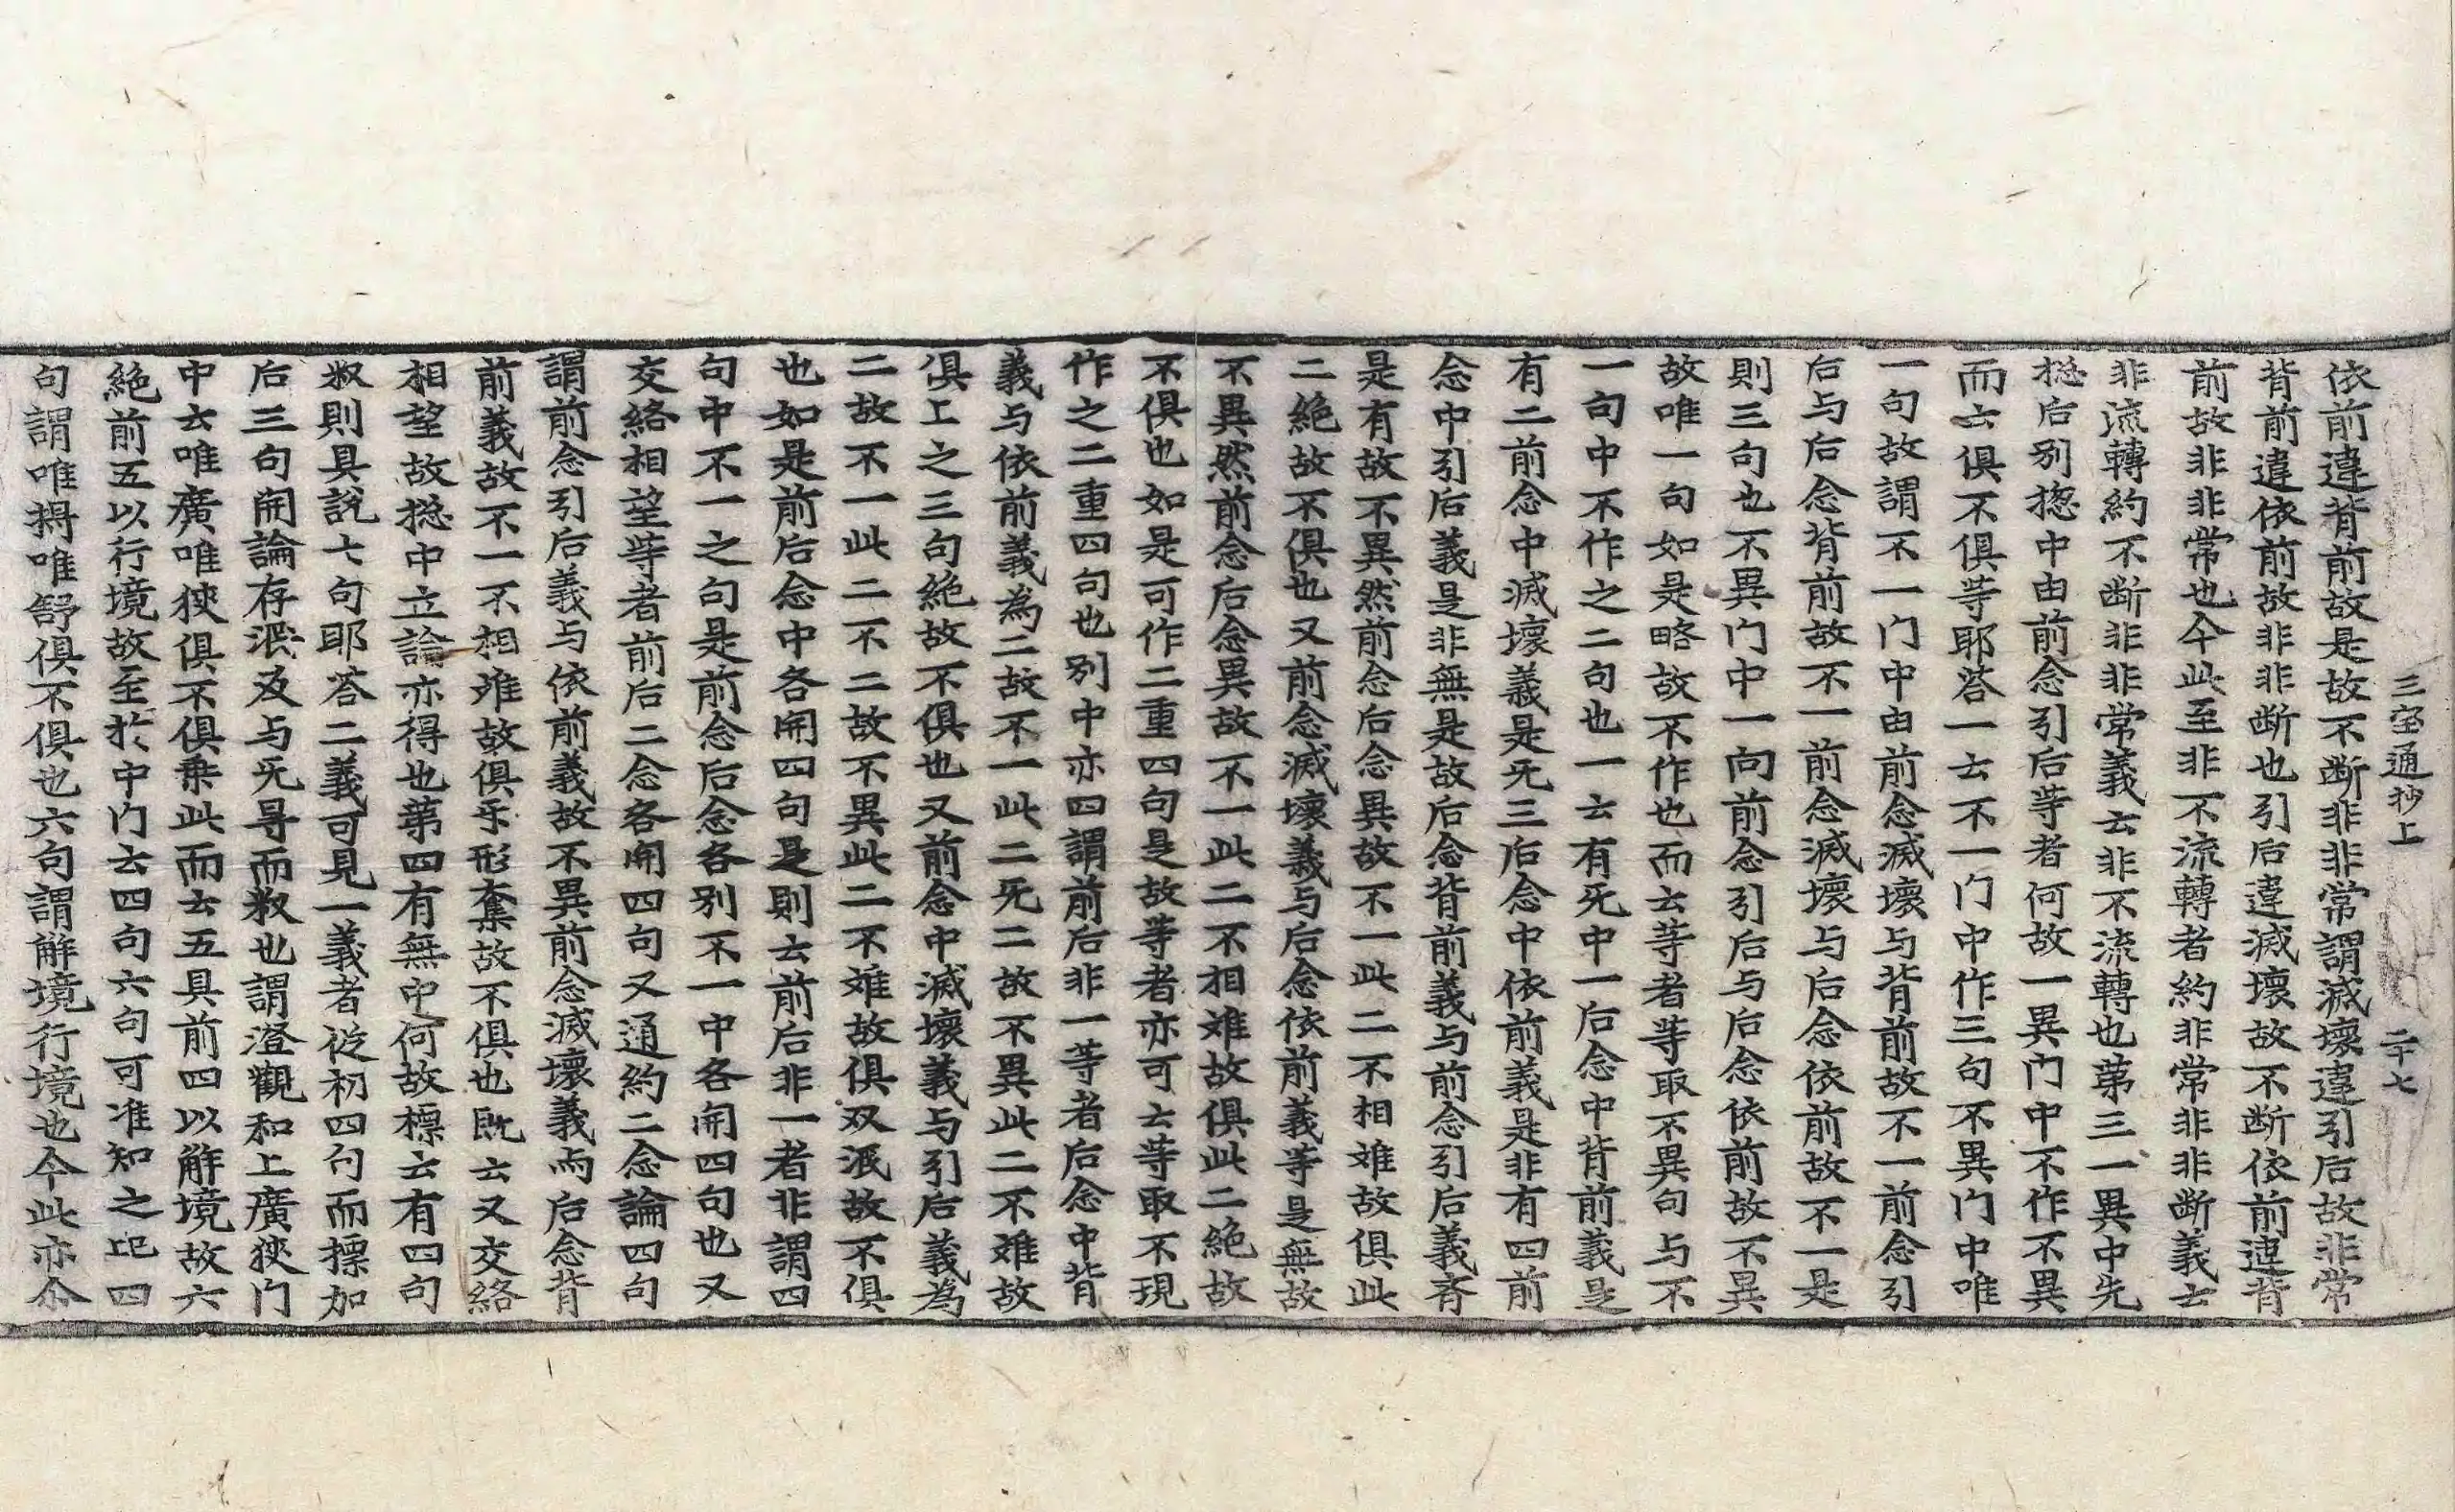 三宝通抄上　二十七
依前違背前故是故不断非非常謂滅壞違引后故非常
背前違依前故非非断也引后違滅壞故不断依前違背
前故非非常也今此至非不流轉者約非常非非断義士
非流轉約不断非非常義云非不流轉也苐三一異中先
揔后別揔中由前念引后䓁者何故一異门中不作不異
而云俱不俱䓁耶荅一云不一门中作三句不異门中唯
一句故謂不一门中由前念滅壞与背前故不一前念引
后与后念背前故不一前念滅壞与后念依前故不一是
則三句也不異门中一向前念引后与后念依前故不異
故唯一句如是略故不作也而云䓁者䓁取不異句与不
一句中不作之二句也一云有死中一后念中背前義是
有二前念中滅壞義是死三后念中依前義是非有四前
念中引后義是非無是故后念背前義与前念引后義斉
是有故不異然前念后念異故不一此二不相难故俱此
二絶故不俱也又前念滅壞義与后念依前義䓁是無故
不異然前念后念異故不一此二不相难故俱此二絶故
不俱也如是可作二重四句是故䓁者亦可云䓁取不現
作之二重四句也別中亦四謂前后非一䓁者后念中背
義与依前義為二故不一此二死二故不異此二不难故
俱上之三句絶故不俱也又前念中滅壞義与引后義為
二故不一此二不二故不異此二不难故俱双泯故不俱
也如是前后念中各開四句是則云前后非一者非謂四
句中不一之句是前念后念各別不一中各開四句也又
交絡相望䓁者前后二念各開四句又通約二念論四句
謂前念引后義与依前義故不異前念滅壞義而后念背
前義故不一不相难故俱乎形奪故不俱也既云又交絡
相望故揔中立論亦得也苐四有無中何故標云有四句
叙則具說七句耶荅二義可見一義者從初四句而摽加
后三句開論存泯及与旡㝵而叙也謂澄觀和上廣狹门
中云唯廣唯狹俱不俱乗此而云五具前四以解境故六
絶前五以行境故至扵中门云四句六句可准知之記四
句謂唯捲唯舒俱不俱也六句謂解境行境也今此亦尒